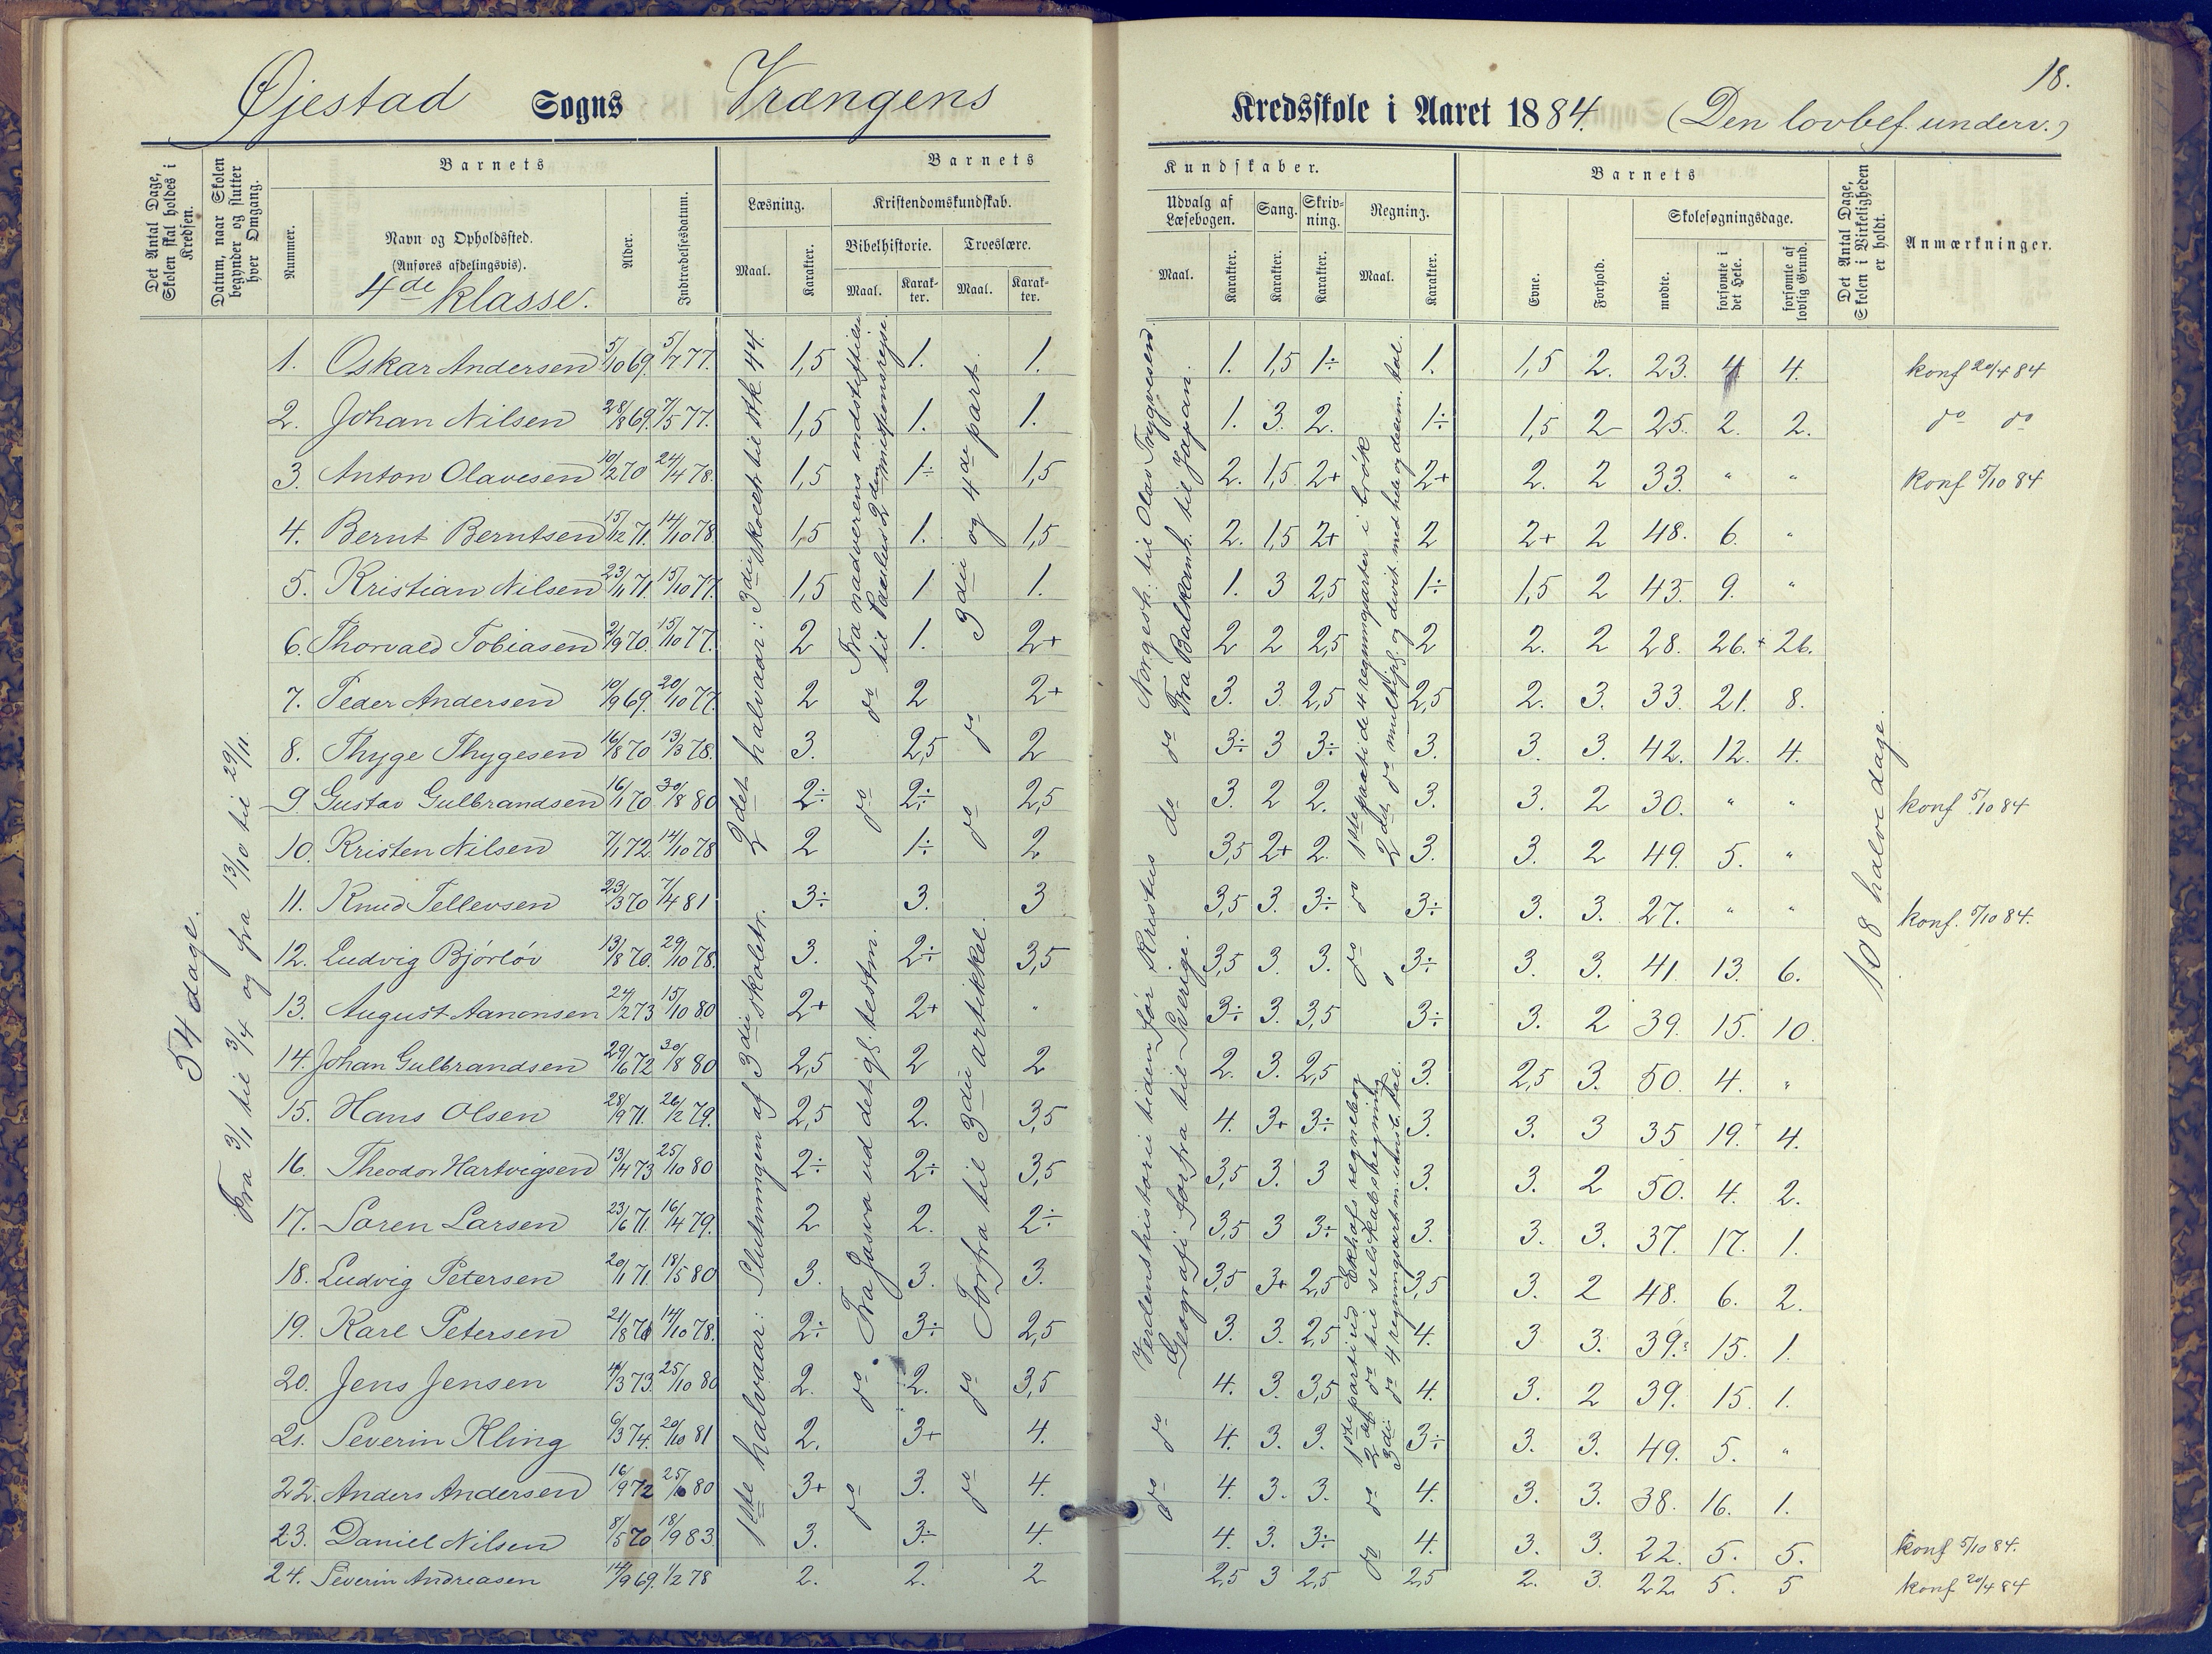 18.
Øjestad Sogns Vrængens Kredsskole i Aaret 1884. (Den lovbef. underv.)
Det Antal Dage, Skolen skal holdes i Kredsen.
Datum, naar Skolen begynder og slutter hver Omgang.
Barnets
Nummer.
Navn og Opholdssted.
(Anføres afdelingsvis).
4de klasse.
Alder.
Indtrædelsesdatum.
Barnets Kundskaber.
Læsning.
Maal.
Karakter.
Kristendomskundskab.
Bibelhistorie.
Maal.
Karakter.
Troeslære.
Maal.
Karakter.
Udvalg af Læsebogen.
Maal.
Karakter.
Sang.
Karakter.
Skrivning.
Karakter.
Regning.
Maal.
Karakter.
Barnets
Evne.
Forhold.
Skolesøgningsdage.
mødte.
forsømte i det Hele.
forsømte af lovlig Grund.
Det Antal Dage, Skolen i Virkeligheden er holdt.
Anmærkninger.
54 dage.
Fra 3/1 til 3/4 og fra 13/10 til 29/11.
1ste halvaar: Slutningen af 3die skoletr.
2det halvaar: 3die skoletr. til stk. 44.
Fra Josva ud det gl. testm.
Fra nadverens indstiftelse til Paulus 2den missionsrejse.
Forfra til 3die artikkel.
3die og 4de part.
Verdenshistorie tiden før Kristus
Geografi forfra til Sverige.
Norgesh. til Olav Trygvesen.
Fra Balkanh. til Japan.
1ste parti ud Ekhofs regnebog
2det do til selskabsregning
3die do 4 regningsart m. ubnb. tal.
1ste parti de 4 regningsarter i brøk
2det do multipl. og divis. med hele og decim. tal.
108 halve dage.
1. Oskar Andersen 5/10 69. 5/7 77. 1,5 1. 1. 1. 1,5 1÷ 1. 1,5 2. 23. 4 4. konf 20/4 84
2. Johan Nilsen 28/8 69. 7/5 77. 1,5 1. 1. 1. 3. 2. 1÷ 1,5 2 25. 2. 2. do do
3. Anton Olavesen 10/2 70 24/4 78. 1,5 1÷ 1,5 2. 1,5 2+ 2+ 2. 2 33. " " konf 5/10 84
4. Bernt Berntsen 15/12 71. 14/10 78 1,5 1. 1,5 2. 1,5 2+ 2 2+ 2 48. 6. "
5. Kristian Nilsen 23/11 71. 15/10 77. 1,5 1 1. 1. 3 2,5 1÷ 1,5 2 43. 9. "
6. Thorvald Tobiasen 2/9 70. 15/10 77. 2 1. 2+ 2 2 2,5 2 2. 2 28. 26. + 26.
7. Peder Andersen 10/9 69. 20/10 77. 2 do 2 do 2+ 3. 3. 2,5 2,5 2. 3. 33. 21. 8.
8. Thyge Thygesen 16/8 70 13/3 78. 3. 2,5 2 do 3÷ 3 3÷ 3. 3. 3. 42. 12. 4.
9. Gustav Gulbrandsen 16/1 70 30/8 80 2÷ do 2÷ do 2,5 do 3. 2 2. 3. 3. 2 30. " " konf 5/10 84
10. Kristen Nilsen 7/1 72. 14/10 78 2 1÷ 2 3,5 2+ 2. 3. 3. 2 49. 5. "
11. Knud Tellevsen 23/3 70 7/4 81 3÷ 3. 3 3,5 3. 3÷ do 3÷ 3. 3. 27. " " konf. 5/10 84.
12. Ludvig Bjørløv 13/8 70. 29/10 78. 3. 2÷ 3,5 3,5 3. 3. do 3÷ 3. 3. 41. 13. 6.
13. August Aanonsen 24/2 73 15/10 80 2+ 2+ " 3÷ 3. 3,5 3÷ 3. 2 39. 15. 10.
14. Johan Gulbrandsen 29/6 72 30/8 80 2,5 2 2 2. 3. 2,5 3. 2,5 3. 50. 4. "
15. Hans Olsen 28/9 71. 26/2 79. 2,5 2. 3,5 4. 3+ 3÷ 3. 3. 3 35 19. 4.
16. Theodor Hartvigsen 13/4 73 25/10 80 2÷ 2÷ 3,5 3,5 3. 3 3. 3. 2 50. 4. 2.
17. Søren Larsen 23/6 71. 16/4 79. 2 2. 2÷ 3,5 3 3÷ 3. 3. 3. 37. 17. 1.
18. Ludvig Petersen 20/1 71. 18/5 80 3. 3. 3. 3,5 3+ 2,5 3,5 3. 2 48. 6. 2.
19. Karl Petersen 21/8 70 14/10 78. 2÷ 3÷ 2,5 3. 3. 2,5 4. 3 3. 39. 15. 1.
20. Jens Jensen 4/3 73. 25/10 80 2. do 2. do 3,5 4. 3. 3,5 4. 3. 2 39. 15. 1.
21. Severin Kling 6/3 74. 20/10 81 2. 3+ 4. do 4. 3. 3. 3÷ 3. 3. 49. 5. "
22. Anders Andersen 16/9 72 25/10 80 3+ do 3. do 4. do 4. 3. 3. do 4. 3. 3. 38. 16. 1.
23. Daniel Nilsen 8/5 70 18/9 83. 3. 3÷ 4. 4. 3. 3÷ do 4. 3. 3. 22. 5. 5. konf 5/10 84.
24. Severin Andreasen 14/9 69. 1/2 78 2. 2. 2 2,5 3 2,5 2,5 2. 3. 22 5. 5 konf 20/4 84